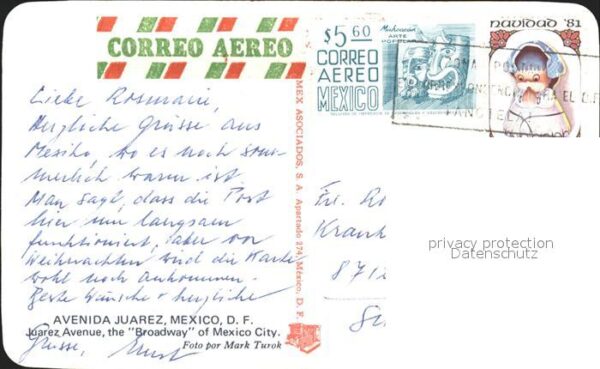 CORREO AEREO
Liebe Rosmarie,
Herzliche Grüsse aus
Mexiko, wo es noch som-
merlich warm ist.
Man sagt, dass die Post
hier nur langsam
funktioniert, aber vor
Weihnachten wird die Karte
wohl noch ankommen.
Beste Wünsche + herzliche
Grüsse, Ernst
AVENIDA JUAREZ, MEXICO, D. F.
Juarez Avenue, the "Broadway" of Mexico City.
Foto por Mark Turok
MEX ASOCIADOS, S. A. Apartado 274, México, D. F.
$5.60
Michoacan
ARTE
POPULAR
CORREO
AEREO
MEXICO
navidad '81
Fr. Ro
Krank
871
privacy protection
Datenschutz